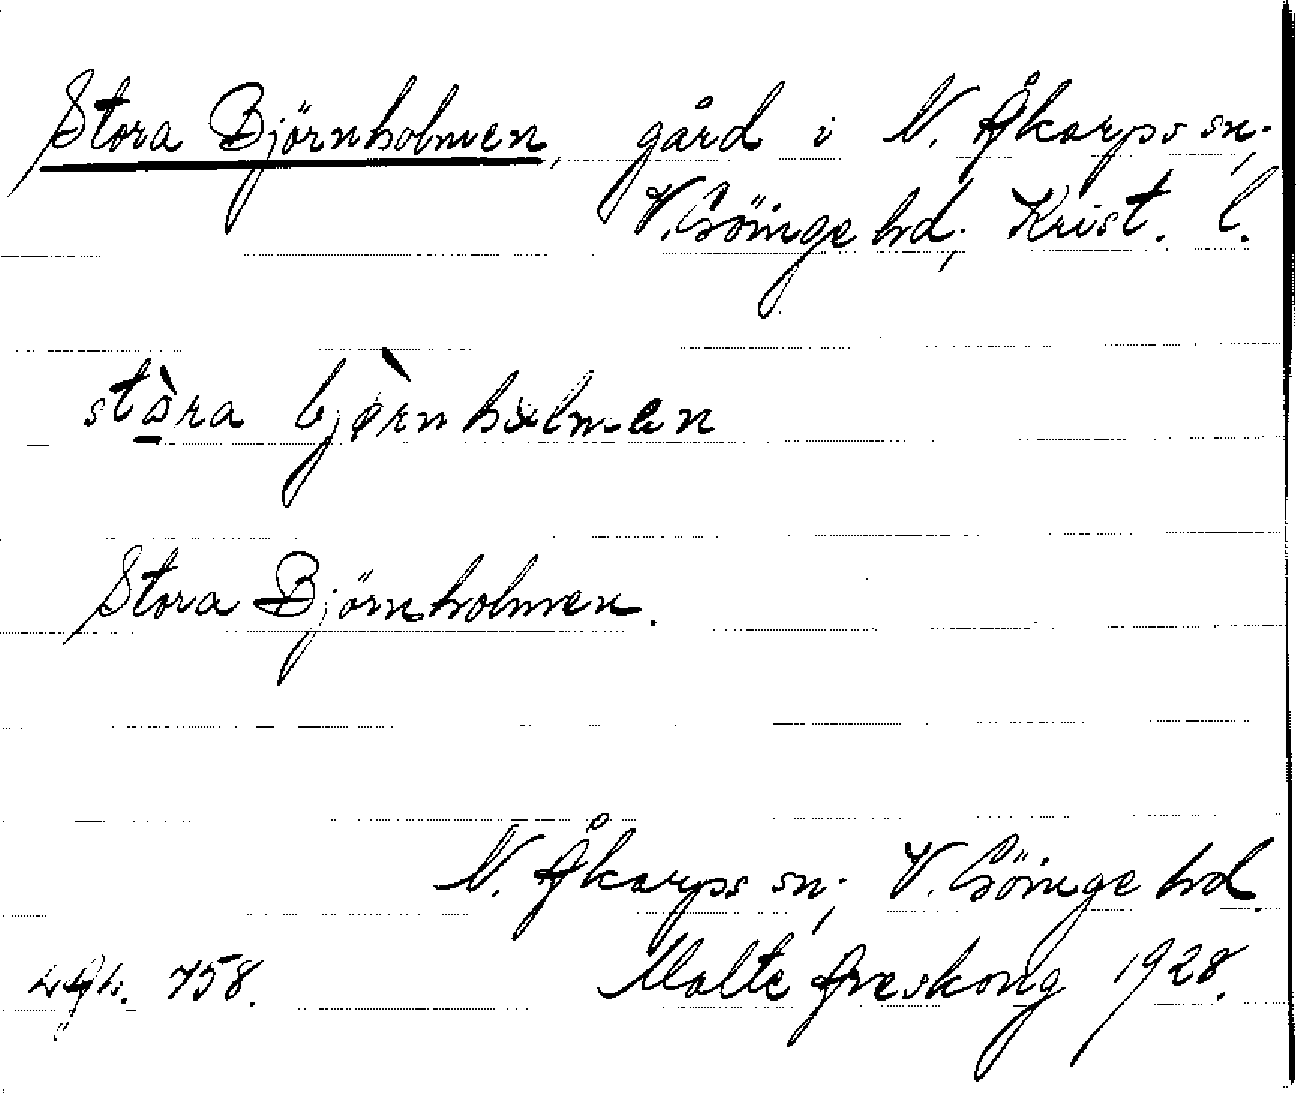 Stora Björnholmen, gård i N. Åkarps sn.,
V. Göinge hd., Krist. l.
stòra bjørnhɔlmen
Stora Björnholmen.
N. Åkarps sn., V. Göinge hd.
758. Malte Areskoug 1928.